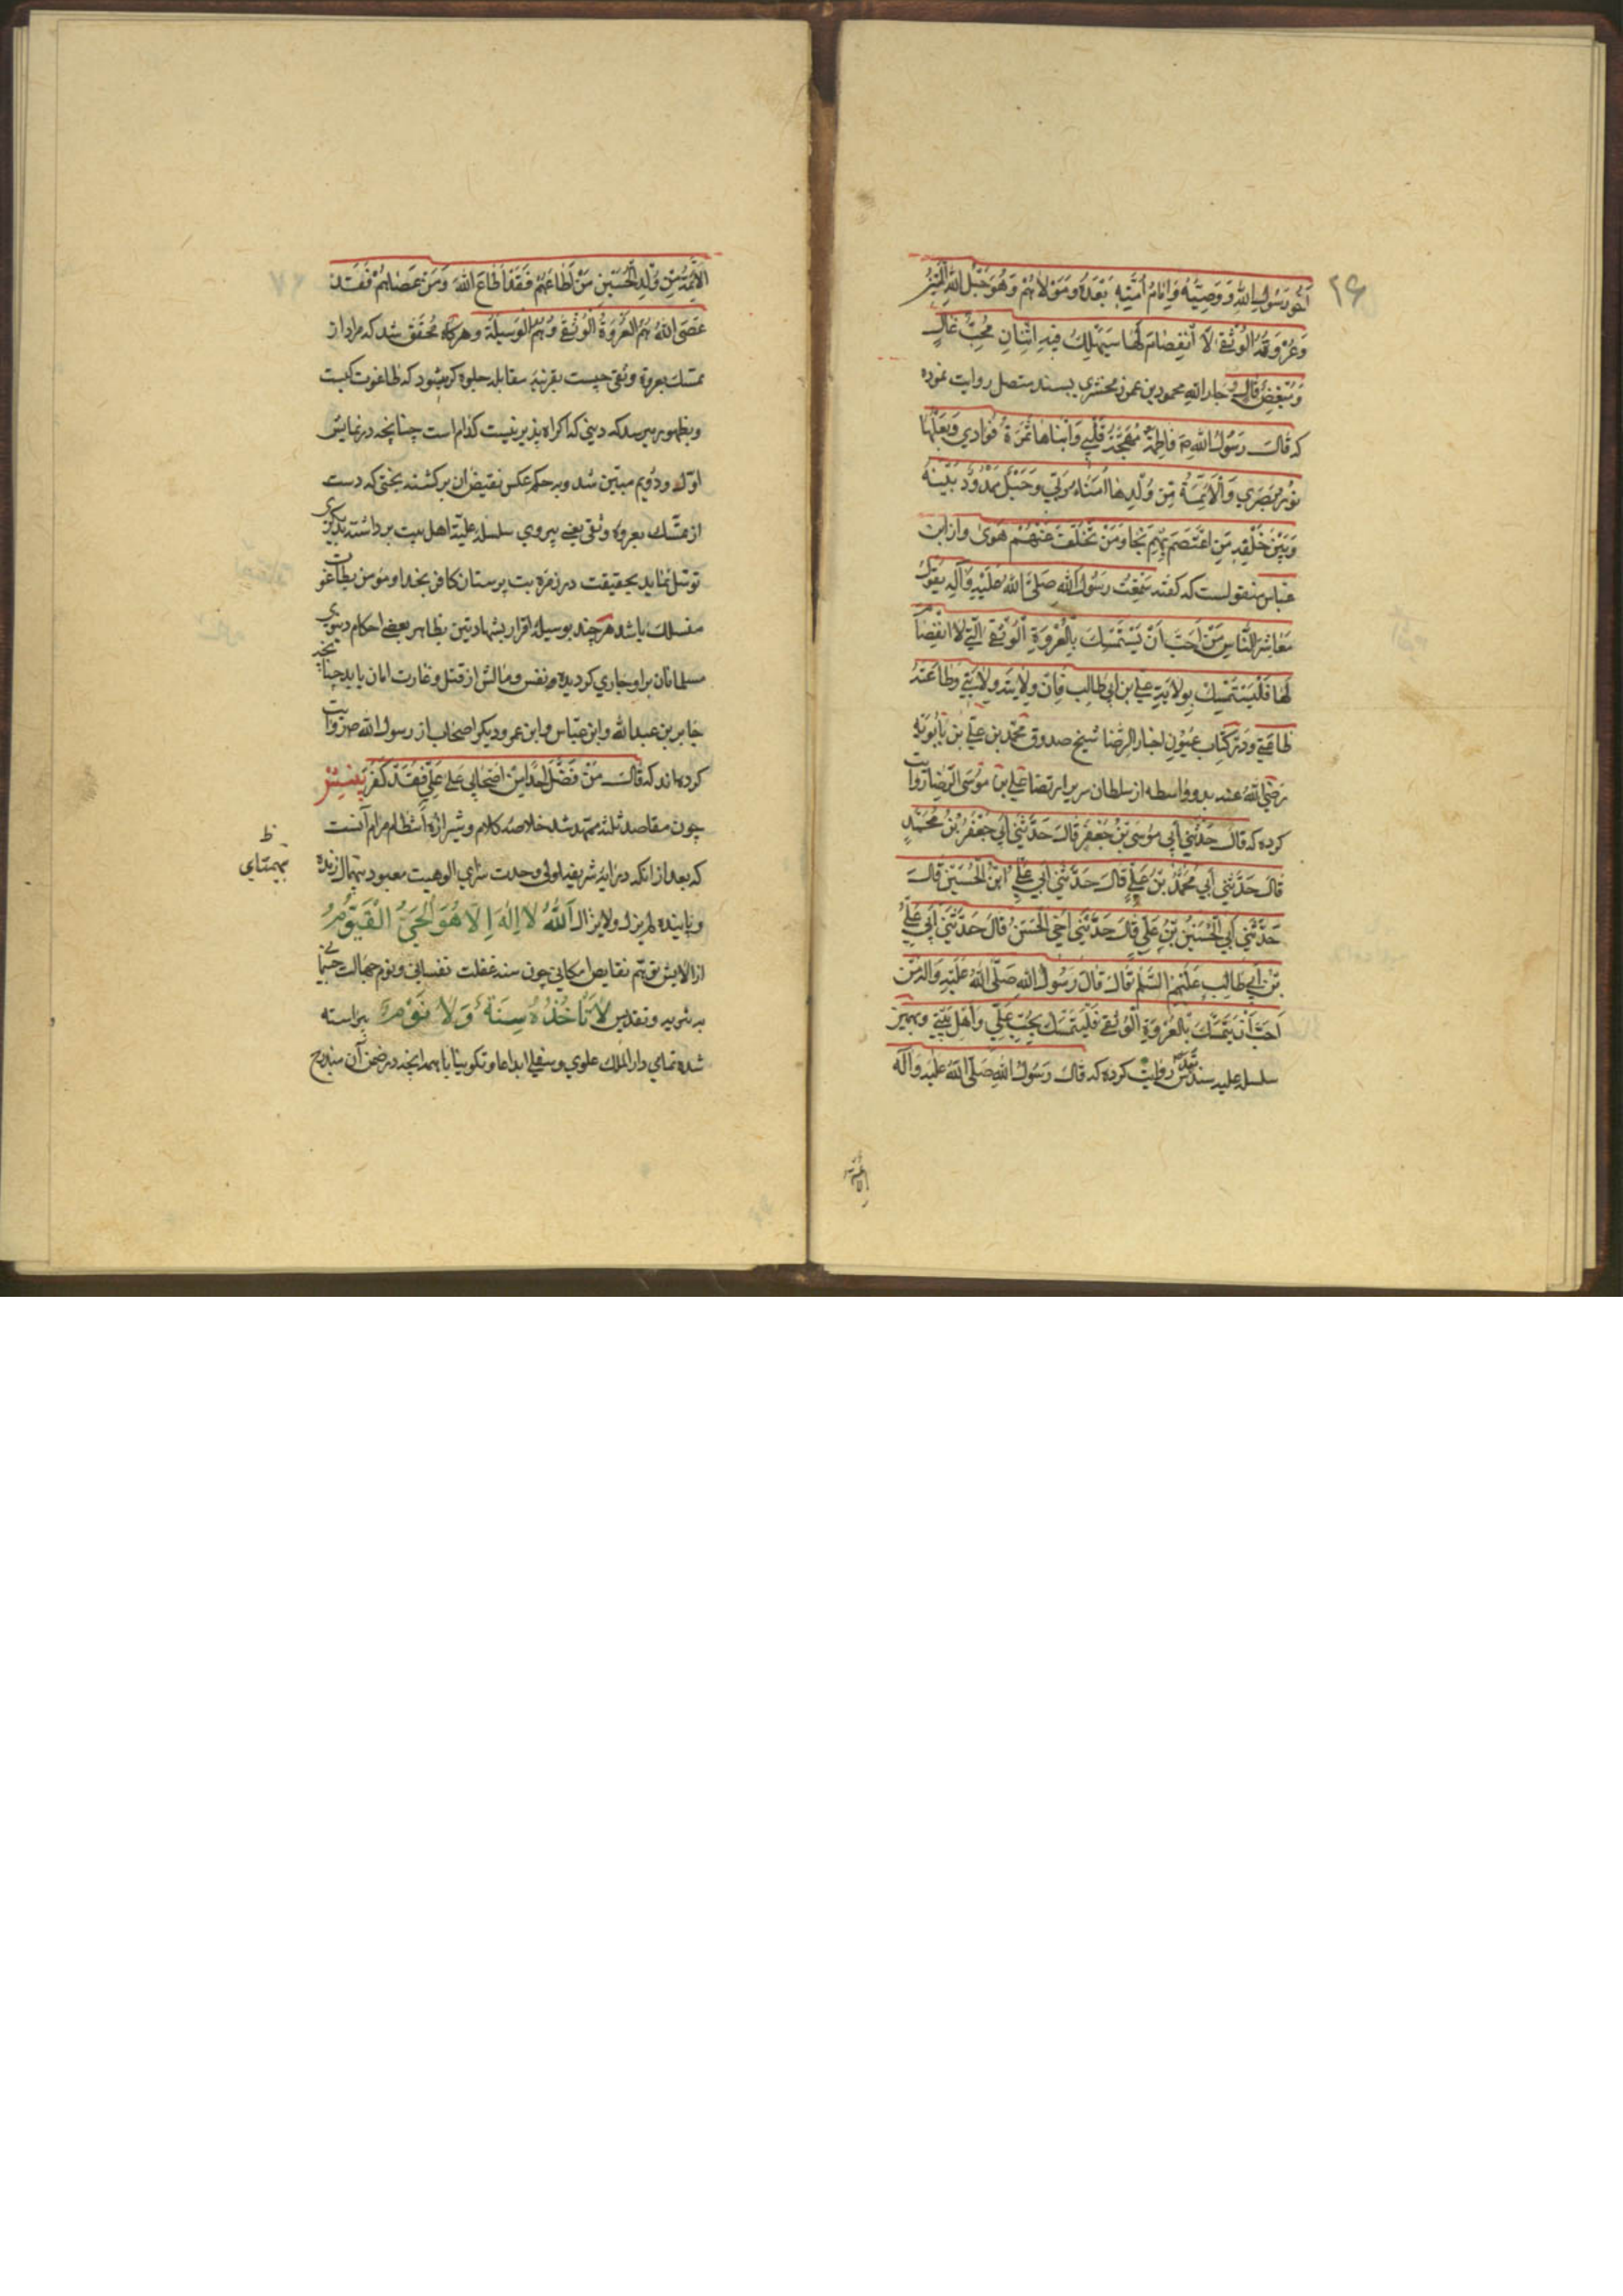 ۲۶
أخو رَسُولِ اللهِ وَ وَصِيُّهُ وَ اِمَامُ اُمَّتِهِ بَعْدَهُ وَ مَوْلاهُمْ وَهُوَ حَبْلُ اللهِ الْمَتِينُ
وَعُرْوَتُهُ الْوُثْقىٰ لَا انْفِصَامَ لَهَا سَيَهْلِكُ فِيهِ اثْنَانِ مُحِبٌّ غَالٍ
وَمُبْغِضٌ قَالٍ و جار الله محمود بن عمر زمخشري بسند متصل روايت نموده
كه قَالَ رَسُولُ اللهِ ص فَاطِمَةُ مُهْجَةُ قَلْبِي وَابْنَاهَا ثَمَرَةُ فُؤَادِي وَبَعْلُهَا
نُورُ بَصَرِي وَالْاَئِمَّةُ مِنْ وُلْدِهَا اُمَنَاءُ رَبِّي وَحَبْلٌ مَمْدُودٌ بَيْنَهُ
وَبَيْنَ خَلْقِهِ مَنِ اعْتَصَمَ بِهِمْ نَجَا وَمَنْ تَخَلَّفَ عَنْهُمْ هَوىٰ و از ابن
عباس منقولست كه گفت سَمِعْتُ رَسُولَ اللهِ صَلَّى اللهُ عَلَيْهِ وَآلِهِ يَقُولُ
مَعَاشِرَ النَّاسِ مَنْ اَحَبَّ اَنْ يَسْتَمْسِكَ بِالْعُرْوَةِ الْوُثْقىٰ الَّتِي لَا انْفِصَامَ
لَهَا فَلْيَسْتَمْسِكْ بِوِلايَةِ عَلِيِّ بْنِ اَبِي طَالِبٍ فَاِنَّ وِلايَتَهُ وِلايَتِي وَطَاعَتَهُ
طَاعَتِي و در كتاب عيون اخبار الرضا شيخ صدوق محمد بن علي بن بابويه
رضي الله عنه بدو واسطه از سلطان سرير ارتضا علي بن موسى الرضا روايت
كرده كه قَالَ حَدَّثَنِي اَبِي مُوسَى بْنُ جَعْفَرٍ قَالَ حَدَّثَنِي اَبِي جَعْفَرُ بْنُ مُحَمَّدٍ
قَالَ حَدَّثَنِي اَبِي مُحَمَّدُ بْنُ عَلِيٍّ قَالَ حَدَّثَنِي اَبِي عَلِيُّ ابْنُ الْحُسَيْنِ قَالَ
حَدَّثَنِي اَبِي الْحُسَيْنُ بْنُ عَلِيٍّ قَالَ حَدَّثَنِي اَخِي الْحَسَنُ قَالَ حَدَّثَنِي اَبِي عَلِيُّ
بْنُ اَبِي طَالِبٍ عَلَيْهِمُ السَّلَام قَالَ قَالَ رَسُولُ اللهِ صَلَّى اللهُ عَلَيْهِ وَآلِهِ مَنْ
اَحَبَّ اَنْ يَتَمَسَّكَ بِالْعُرْوَةِ الْوُثْقىٰ فَلْيَتَمَسَّكْ بِحُبِّ عَلِيٍّ وَاَهْلِ بَيْتِي و بهمين
سلسله عليه سند مقدس روايت كرده كه قَالَ رَسُولُ اللهِ صَلَّى اللهُ عَلَيْهِ وَآلِه
الائمة
الْاَئِمَّةُ مِنْ وُلْدِ الْحُسَيْنِ مَنْ اَطَاعَهُمْ فَقَدْ اَطَاعَ اللهَ وَمَنْ عَصَاهُمْ فَقَدْ
عَصَى اللهَ هُمُ الْعُرْوَةُ الْوُثْقىٰ وَهُمُ الْوَسِيلَةُ و هرگاه محقق شد كه مراد از
تمسك بعروه وثقى چيست بقرينه مقابله جلوه گر ميشود كه طاغوت كيست
و بظهور ميرسد كه ديني كه اكراه پذير نيست كدام است چنانچه در نمايش
اول و دويم مبين شد و به حكم عكس نقيض ان برگشته بختى كه دست
از تمسك بعروه وثقى يعني پيروي سلسله عليه اهل بيت برداشته بديگري
توسل نمايد بحقيقت در زمره بت پرستان كافر بخدا و مومن بطاغوت
منسلك باشد هر چند بوسيله اقرار بشهادتين بظاهر بعضي احكام دنيوي
مسلمانان براو جاري گرديده و نفس و مالش از قتل و غارت امان يابد چنانچه
جابر بن عبد الله و ابن عباس و ابن عمر و ديگر اصحاب از رسول الله ص روايت
كرده اند كه قَالَ مَنْ فَضَّلَ اَحَدًا مِنْ اَصْحَابِي عَلىٰ عَلِيٍّ فَقَدْ كَفَرَ
چون مقاصد ثلثه ممهد شد خلاصه كلام و شيرازه انتظام مرام آنست
كه بعد از انكه در ايه شريفه اولى وحدت سزاي الوهيت معبود بيهمال زنده
ظ
بيهمتاي
و پاينده لم يزل ولا يزال اَللهُ لَا اِلٰهَ اِلَّا هُوَ الْحَيُّ الْقَيُّومُ
از الايش توهم نقايص امكاني چون سنه غفلت نفساني و نوم جهالت جسماني
به تنزيه و تقديس لَا تَاْخُذُهُ سِنَةٌ وَلَا نَوْمٌ پيراسته
شده تمامي دار الملك علوي و سفلي ابداعا و تكوينا باهمه انچه در ضمن آن مندرج